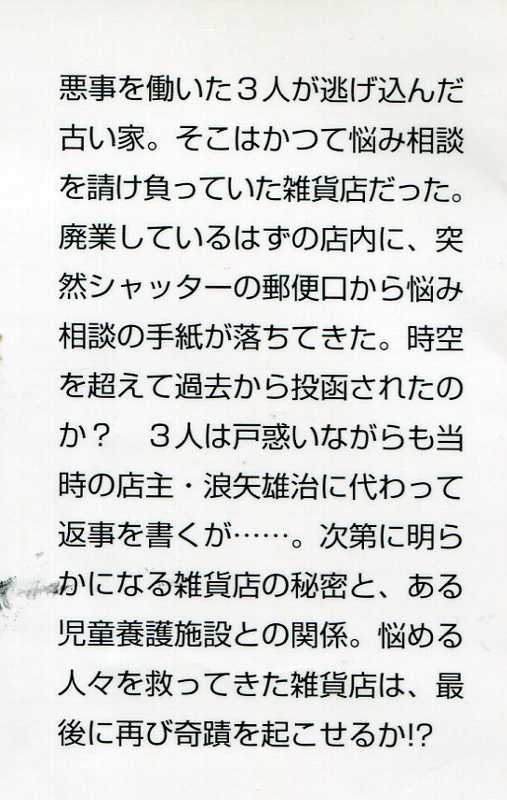 悪事を働いた３人が逃げ込んだ
古い家。そこはかつて悩み相談
を請け負っていた雑貨店だった。
廃業しているはずの店内に、突
然シャッターの郵便口から悩み
相談の手紙が落ちてきた。時空
を超えて過去から投函されたの
か？　３人は戸惑いながらも当
時の店主・浪矢雄治に代わって
返事を書くが……。次第に明ら
かになる雑貨店の秘密と、ある
児童養護施設との関係。悩める
人々を救ってきた雑貨店は、最
後に再び奇蹟を起こせるか!?